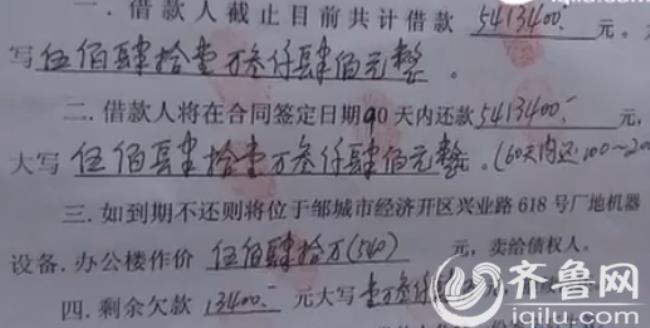 一.借款人截止目前共计借款 5413400.- 元。
写 伍佰肆拾壹万叁仟肆佰元整。
二.借款人将在合同签定日期90天内还款 5413400.- 元,
大写 伍佰肆拾壹万叁仟肆佰元整。(60天内还100~200
三.如到期不还则将位于邹城市经济开区兴业路618号厂地机器
设备.办公楼作价 伍佰肆拾万(540) 元,卖给债权人。
四.剩余欠款 13400.- 元大写 壹万叁仟肆
齐鲁网
iqilu.com